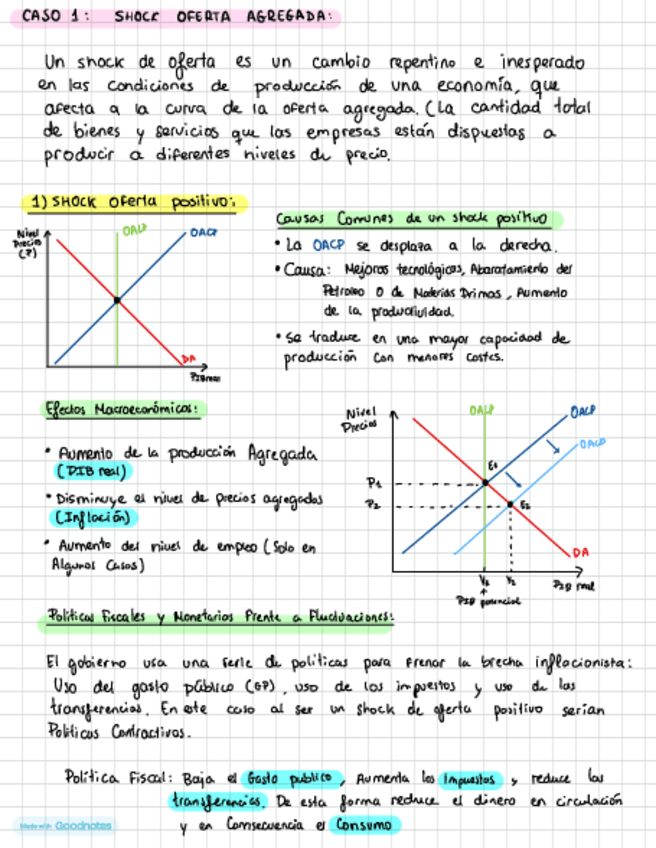 CASO 1: SHOCK OFERTA AGREGADA:
Un shock de oferta es un cambio repentino e inesperado
en las condiciones de producción de una economía, que
afecta a la curva de la oferta agregada. (La cantidad total
de bienes y servicios que las empresas están dispuestas a
producir a diferentes niveles de precio.
1) SHOCK Oferta positivo:
Nivel
Precios
(P)
OALP
OACP
DA
PIB real
Causas Comunes de un shock positivo
• La OACP se desplaza a la derecha.
• Causa: Mejoras tecnológicas, Abaratamiento del
Petroleo O de Materias Primas, Aumento
de la productividad.
• Se traduce en una mayor capacidad de
producción con menores costes.
Efectos Macroeconómicos:
• Aumento de la producción Agregada
(PIB real)
• Disminuye el nivel de precios agregados
(Inflación)
• Aumento del nivel de empleo (Solo en
Algunos Casos)
Nivel
Precios
OALP
OACP
OACP
E1
P1
P2
E2
DA
Y1
Y2
PIB real
PIB potencial
Políticas Fiscales y Monetarias Frente a Fluctuaciones:
El gobierno usa una serie de políticas para Frenar la brecha inflacionista:
Uso del gasto público (GP), uso de los impuestos y uso de las
transferencias. En este caso al ser un shock de oferta positivo serian
Políticas Contractivas.
Política Fiscal: Baja el Gasto publico, Aumenta los Impuestos y reduce las
transferencias. De esta forma reduce el dinero en circulación
y en Consecuencia el Consumo
Made with Goodnotes